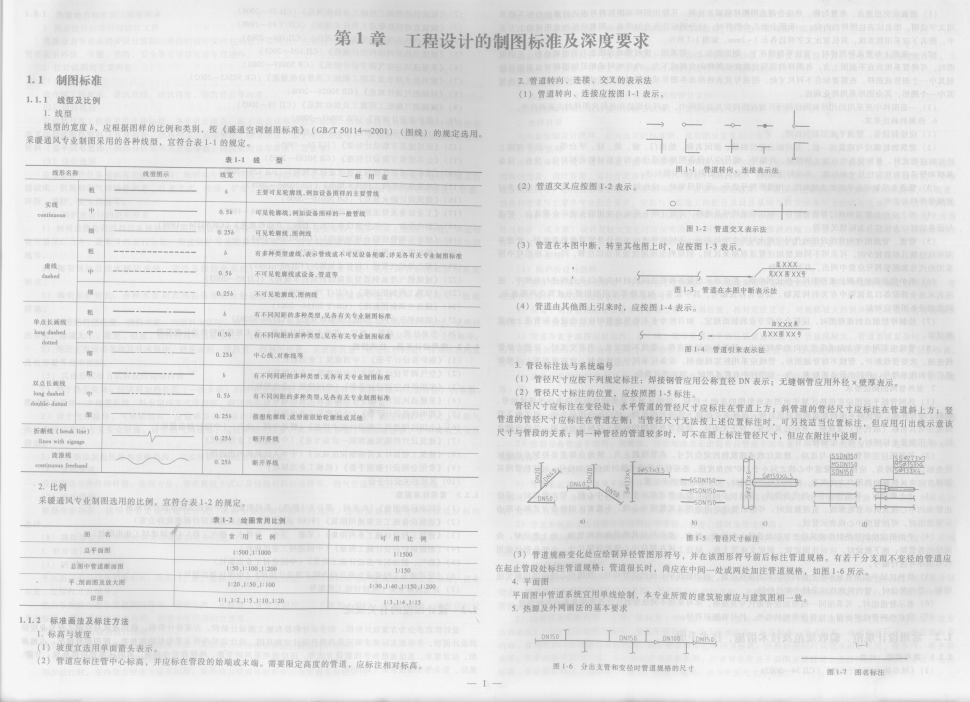 第1章 工程设计的制图标准及深度要求
1.1 制图标准
1.1.1 线型及比例
1. 线型
线型的宽度 b，应根据图样的比例和类别，按《暖通空调制图标准》（GB/T 50114—2001）（图线）的规定选用。
采暖通风专业制图采用的各种线型，宜符合表 1-1 的规定。
表 1-1 线 型
线形名称 线型图示 线宽 一 般 用 途
实线 continuous
粗 b 主要可见轮廓线，例如设备图样的主要管线
中 0.5b 可见轮廓线，例如设备图样的一般管线
细 0.25b 可见轮廓线，图例线
虚线 dashed
粗 b 有多种类型虚线，表示管线或不可见设备轮廓，详见各有关专业制图标准
中 0.5b 不可见轮廓线或设备、管道等
细 0.25b 不可见轮廓线，图例线
单点长画线 long dashed dotted
粗 b 有不同间距的多种类型，见各有关专业制图标准
中 0.5b 有不同间距的多种类型，见各有关专业制图标准
细 0.25b 中心线、对称线等
双点长画线 long dashed double-dotted
粗 b 有不同间距的多种类型，见各有关专业制图标准
中 0.5b 有不同间距的多种类型，见各有关专业制图标准
细 0.25b 假想轮廓线，成型前原始轮廓线或其他
折断线（break line） lines with zigzags 0.25b 断开界线
波浪线 continuous freehand 0.25b 断开界线
2. 比例
采暖通风专业制图选用的比例，宜符合表 1-2 的规定。
表 1-2 绘图常用比例
图 名 常 用 比 例 可 用 比 例
总平面图 1:500、1:1000 1:1500
总图中管道断面图 1:50、1:100、1:200 1:150
平、剖面图及放大图 1:20、1:50、1:100 1:30、1:40、1:150、1:200
详图 1:1、1:2、1:5、1:10、1:20 1:3、1:4、1:15
1.1.2 标准画法及标注方法
1. 标高与坡度
（1）坡度宜选用单面箭头表示。
（2）管道应标注管中心标高，并应标在管段的始端或末端。需要限定高度的管道，应标注相对标高。
2. 管道转向、连接、交叉的表示法
（1）管道转向、连接应按图 1-1 表示。
图 1-1 管道转向、连接表示法
（2）管道交叉应按图 1-2 表示。
图 1-2 管道交叉表示法
（3）管道在本图中断，转至其他图上时，应按图 1-3 表示。
图 1-3 管道在本图中断表示法
（4）管道由其他图上引来时，应按图 1-4 表示。
图 1-4 管道引来表示法
3. 管径标注法与系统编号
（1）管径尺寸应按下列规定标注：焊接钢管应用公称直径 DN 表示；无缝钢管应用外径×壁厚表示。
（2）管径尺寸标注的位置，应按照图 1-5 标注。
管径尺寸应标注在变径处；水平管道的管径尺寸应标注在管道上方；斜管道的管径尺寸应标注在管道斜上方；竖
管道的管径尺寸应标注在管道左侧；当管径尺寸无法按上述位置标注时，可另找适当位置标注，但应用引出线示意该
尺寸与管段的关系；同一种管径的管道较多时，可不在图上标注管径尺寸，但应在附注中说明。
DN40
DN50
SSDN150
MSDN150
CSDN150
a) b) c) d)
图 1-5 管径尺寸标注
（3）管道规格变化处应绘制异径管图形符号，并在该图形符号前后标注管道规格，有若干分支而不变径的管道应
在起止管段处标注管道规格；管道很长时，尚应在中间一处或两处加注管道规格，如图 1-6 所示。
4. 平面图
平面图中管道系统宜用单线绘制，本专业所需的建筑轮廓应与建筑图相一致。
5. 热源及外网画法的基本要求
DN150 DN150 DN100 DN150
图 1-6 分出支管和变径时管道规格的尺寸
图 1-7 图名标注
— 1 —